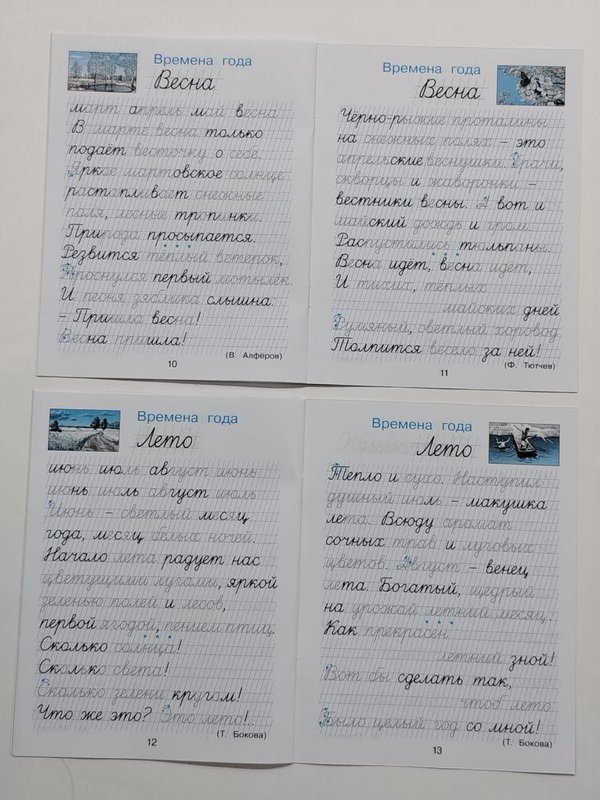 Времена года
Весна
март апрель май весна
В марте весна только
подаёт весточку о себе.
Яркое мартовское солнце
растапливает снежные
поля, лесные тропинки.
Природа просыпается.
Резвится тёплый ветерок,
Проснулся первый мотылёк.
И песня зяблика слышна:
– Пришла весна!
Весна пришла!
(В. Алфёров)
10
Времена года
Весна
Чёрно-рыжие проталины
на снежных полях – это
апрельские веснушки. Грачи,
скворцы и жаворонки –
вестники весны. А вот и
майский дождь и гром.
Распустились тюльпаны.
Весна идёт, весна идёт,
И тихих, тёплых
майских дней
Румяный, светлый хоровод
Толпится весело за ней!
(Ф. Тютчев)
11
Времена года
Лето
июнь июль август июнь
июнь июль август июль
Июнь – светлый месяц
года, месяц белых ночей.
Начало лета радует нас
цветущими лугами, яркой
зеленью полей и лесов,
первой ягодой, пением птиц.
Сколько солнца!
Сколько света!
Сколько зелени кругом!
Что же это? Это лето!..
(Т. Бокова)
12
Времена года
Лето
Тепло и сухо. Наступил
душный июль – макушка
лета. Всюду аромат
сочных трав и луговых
цветов. Август – венец
лета. Богатый, щедрый
на урожай летний месяц.
Как прекрасен
летний зной!
Вот бы сделать так,
чтоб лето
Было целый год со мной!
(Т. Бокова)
13